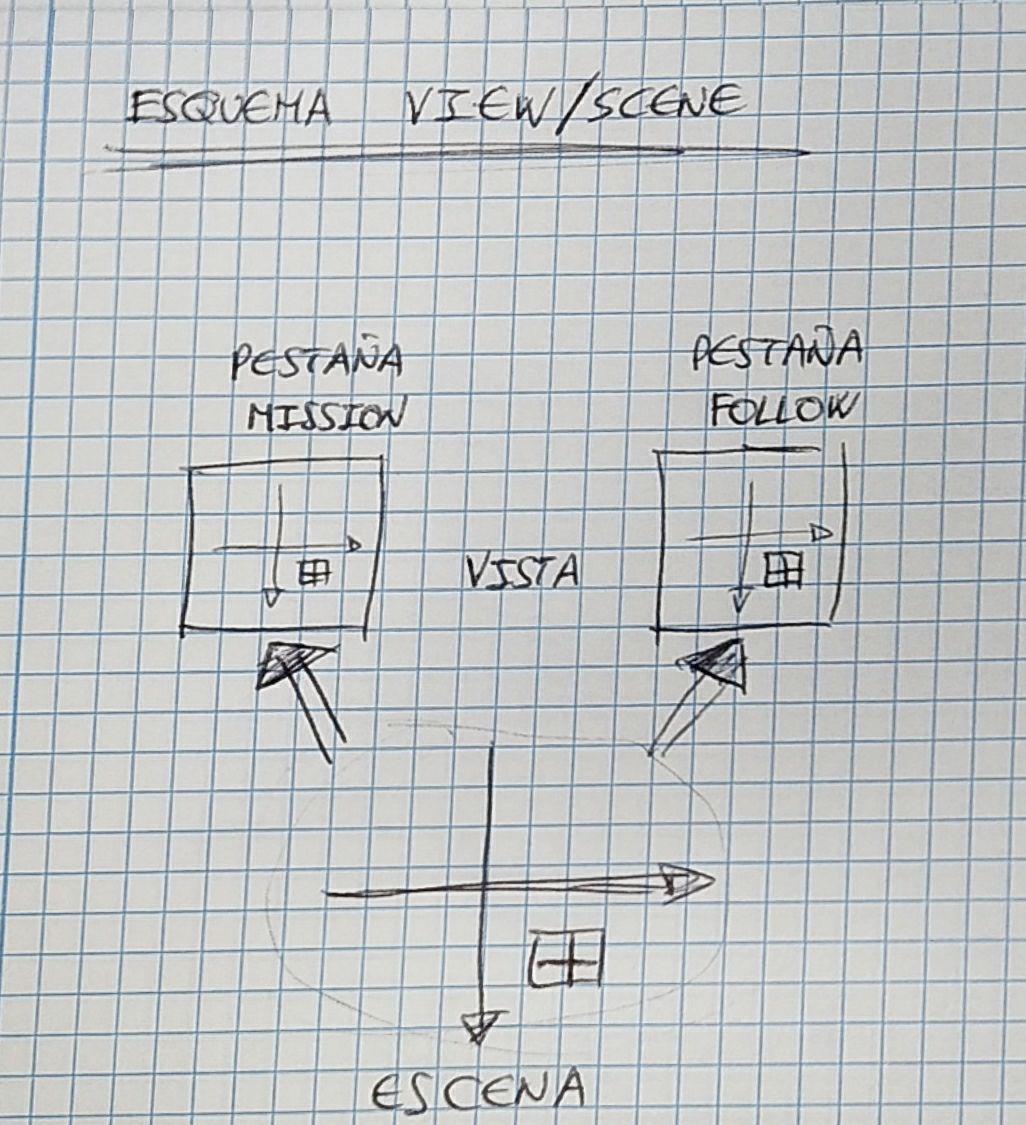 ESQUEMA VIEW/SCENE
PESTAÑA
MISSION
PESTAÑA
FOLLOW
VISTA
ESCENA